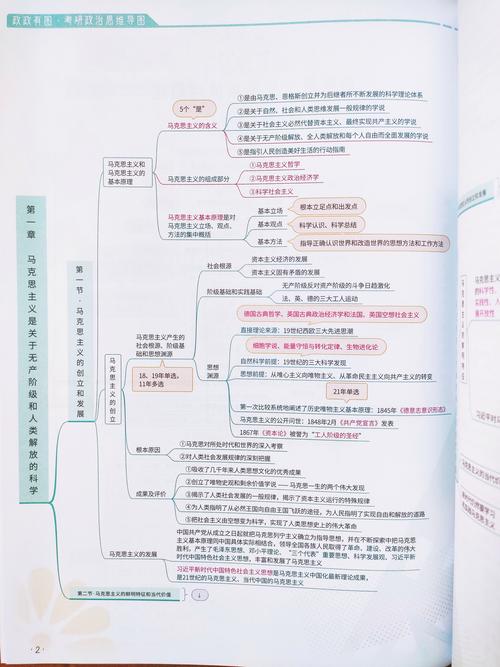 政政有图·考研政治思维导图
第一章 马克思主义是关于无产阶级和人类解放的科学
第一节·马克思主义的创立和发展
马克思主义和
马克思主义的
基本原理
5个“是”
马克思主义的含义
①是由马克思、恩格斯创立并为后继者所不断发展的科学理论体系
②是关于自然、社会和人类思维发展一般规律的学说
③是关于社会主义必然代替资本主义、最终实现共产主义的学说
④是关于无产阶级解放、全人类解放和每个人自由而全面发展的学说
⑤是指引人民创造美好生活的行动指南
马克思主义的组成部分
①马克思主义哲学
②马克思主义政治经济学
③科学社会主义
马克思主义基本原理是对
马克思主义立场、观点、
方法的集中概括
基本立场
根本立足点和出发点
基本观点
科学认识、科学总结
基本方法
指导正确认识世界和改造世界的思想方法和工作方法
马克思主义的创立
马克思主义产生的
社会根源、阶级基
础和思想渊源
18、19年单选。
11年多选
社会根源
资本主义经济的发展
资本主义固有矛盾的发展
阶级基础和实践基础
无产阶级反对资产阶级的斗争日趋激化
法、英、德的三大工人运动
思想
渊源
德国古典哲学、英国古典政治经济学和法国、英国空想社会主义
直接理论来源：19世纪西欧三大先进思潮
细胞学说、能量守恒与转化定律、生物进化论
自然科学前提：19世纪的三大科学发现
思想前提：从唯心主义向唯物主义、从革命民主主义向共产主义的转变
21年单选
第一次比较系统地阐述了历史唯物主义基本原理：1845年《德意志意识形态》
马克思主义的公开问世：1848年2月《共产党宣言》发表
1867年《资本论》被誉为“工人阶级的圣经”
根本原因
①马克思对所处时代和世界的深入考察
②对人类社会发展规律的深刻把握
成果及评价
①吸收了几千年来人类思想文化的优秀成果
②创立了唯物史观和剩余价值学说——马克思一生的两个伟大发现
③揭示了人类社会发展的一般规律，揭示了资本主义运行的特殊规律
④为人类指明了从必然王国向自由王国飞跃的途径，为人民指明了实现自由和解放的道路
⑤把社会主义由空想变为科学，实现了人类思想史上的伟大革命
马克思主义的发展
中国共产党从成立之日起就把马克思列宁主义确立为指导思想，并在不断探索中把马克思
主义基本原理同中国具体实际相结合，领导全国各族人民取得了革命、建设、改革的伟大
胜利，产生了毛泽东思想、邓小平理论、“三个代表”重要思想、科学发展观、习近平新
时代中国特色社会主义思想，丰富和发展了马克思主义
习近平新时代中国特色社会主义思想是马克思主义中国化最新理论成果，
是21世纪的马克思主义、当代中国的马克思主义
第二节·马克思主义的鲜明特征和当代价值
·2·